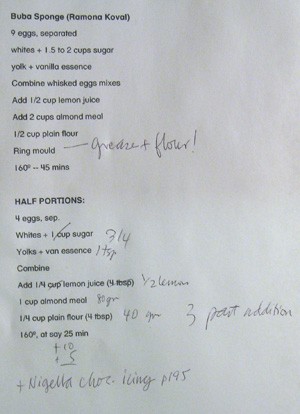 Buba Sponge (Ramona Koval)
9 eggs, separated
whites + 1.5 to 2 cups sugar
yolk + vanilla essence
Combine whisked eggs mixes
Add 1/2 cup lemon juice
Add 2 cups almond meal
1/2 cup plain flour
Ring mould — grease + flour!
160º – 45 mins
HALF PORTIONS:
4 eggs, sep.
Whites + 1 cup sugar 3/4
Yolks + van essence 1 tsp
Combine
Add 1/4 cup lemon juice (4 tbsp) 1/2 lemon
1 cup almond meal 80 gm
1/4 cup plain flour (4 tbsp) 40 gm 3 part addition
160º, at say 25 min
+ 10
+ 5
+ Nigella choc. icing p195